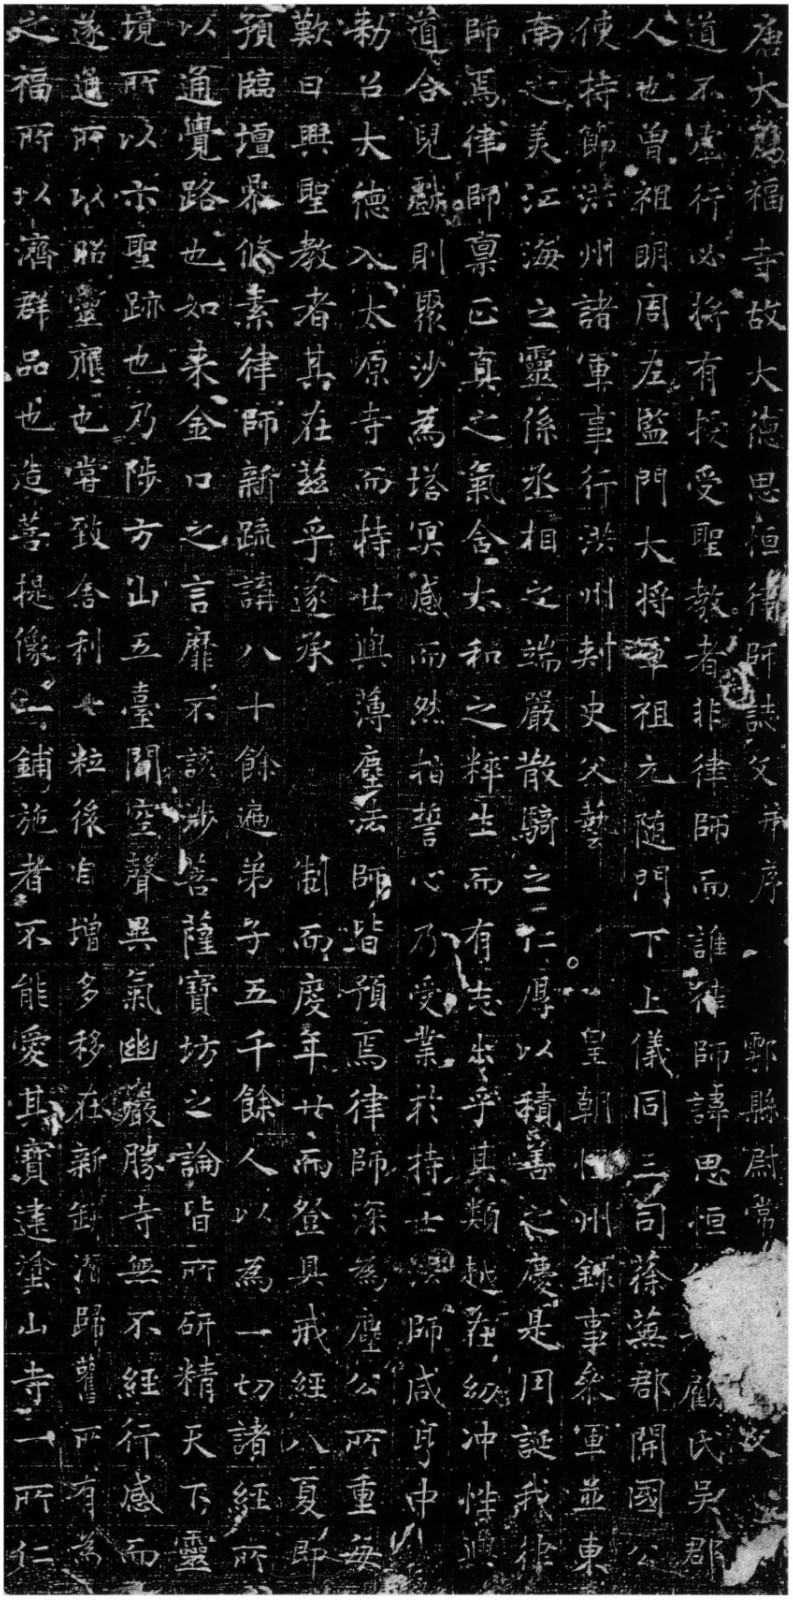 唐大薦福寺故大德思恒律師誌文并序 鄠縣尉常
道不虛行必將有授受聖教者非律師而誰律師諱思恒俗姓顧氏吳郡
人也曾祖明周左監門大將軍祖元隋門下上儀同三司蔡蕪郡開國公
使持節洪州諸軍事行洪州刺史父藝 皇朝恒州錄事參軍並東
南之美江海之靈係丞相之端嚴散騎之仁厚以積善之慶是用誕我律
師焉律師稟正真之氣含太和之粹生而有志出乎其類越在幼沖性與
道合兒戲則聚沙為塔冥感而然指誓心乃受業於持世法師咸亨中
勅召大德入太原寺而持世與薄塵法師皆預焉律師深為塵公所重每
歎曰興聖教者其在茲乎遂承 制而度年廿而登具戒經八夏即
預臨壇參修素律師新疏講八十餘遍弟子五千餘人以為一切諸經所
以通覺路也如來金口之言靡不該涉菩薩寶坊之論皆所研精天下靈
境所以示聖跡也乃陟方山五臺聞空聲異氣幽巖勝寺無不經行感而
遂通所以昭靈應也嘗致舍利七粒後自增多移在新卸潛歸舊所有為
之福所以濟群品也造菩提像一鋪施者不能愛其寶建塗山寺一所仁